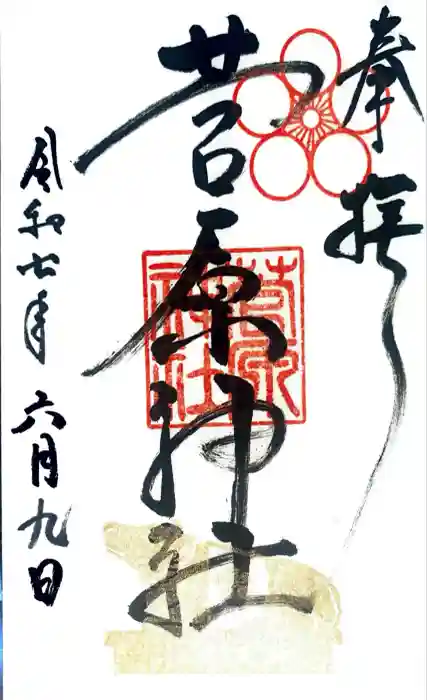 奉拝
菅原神社
菅原
神社
令和七年六月九日